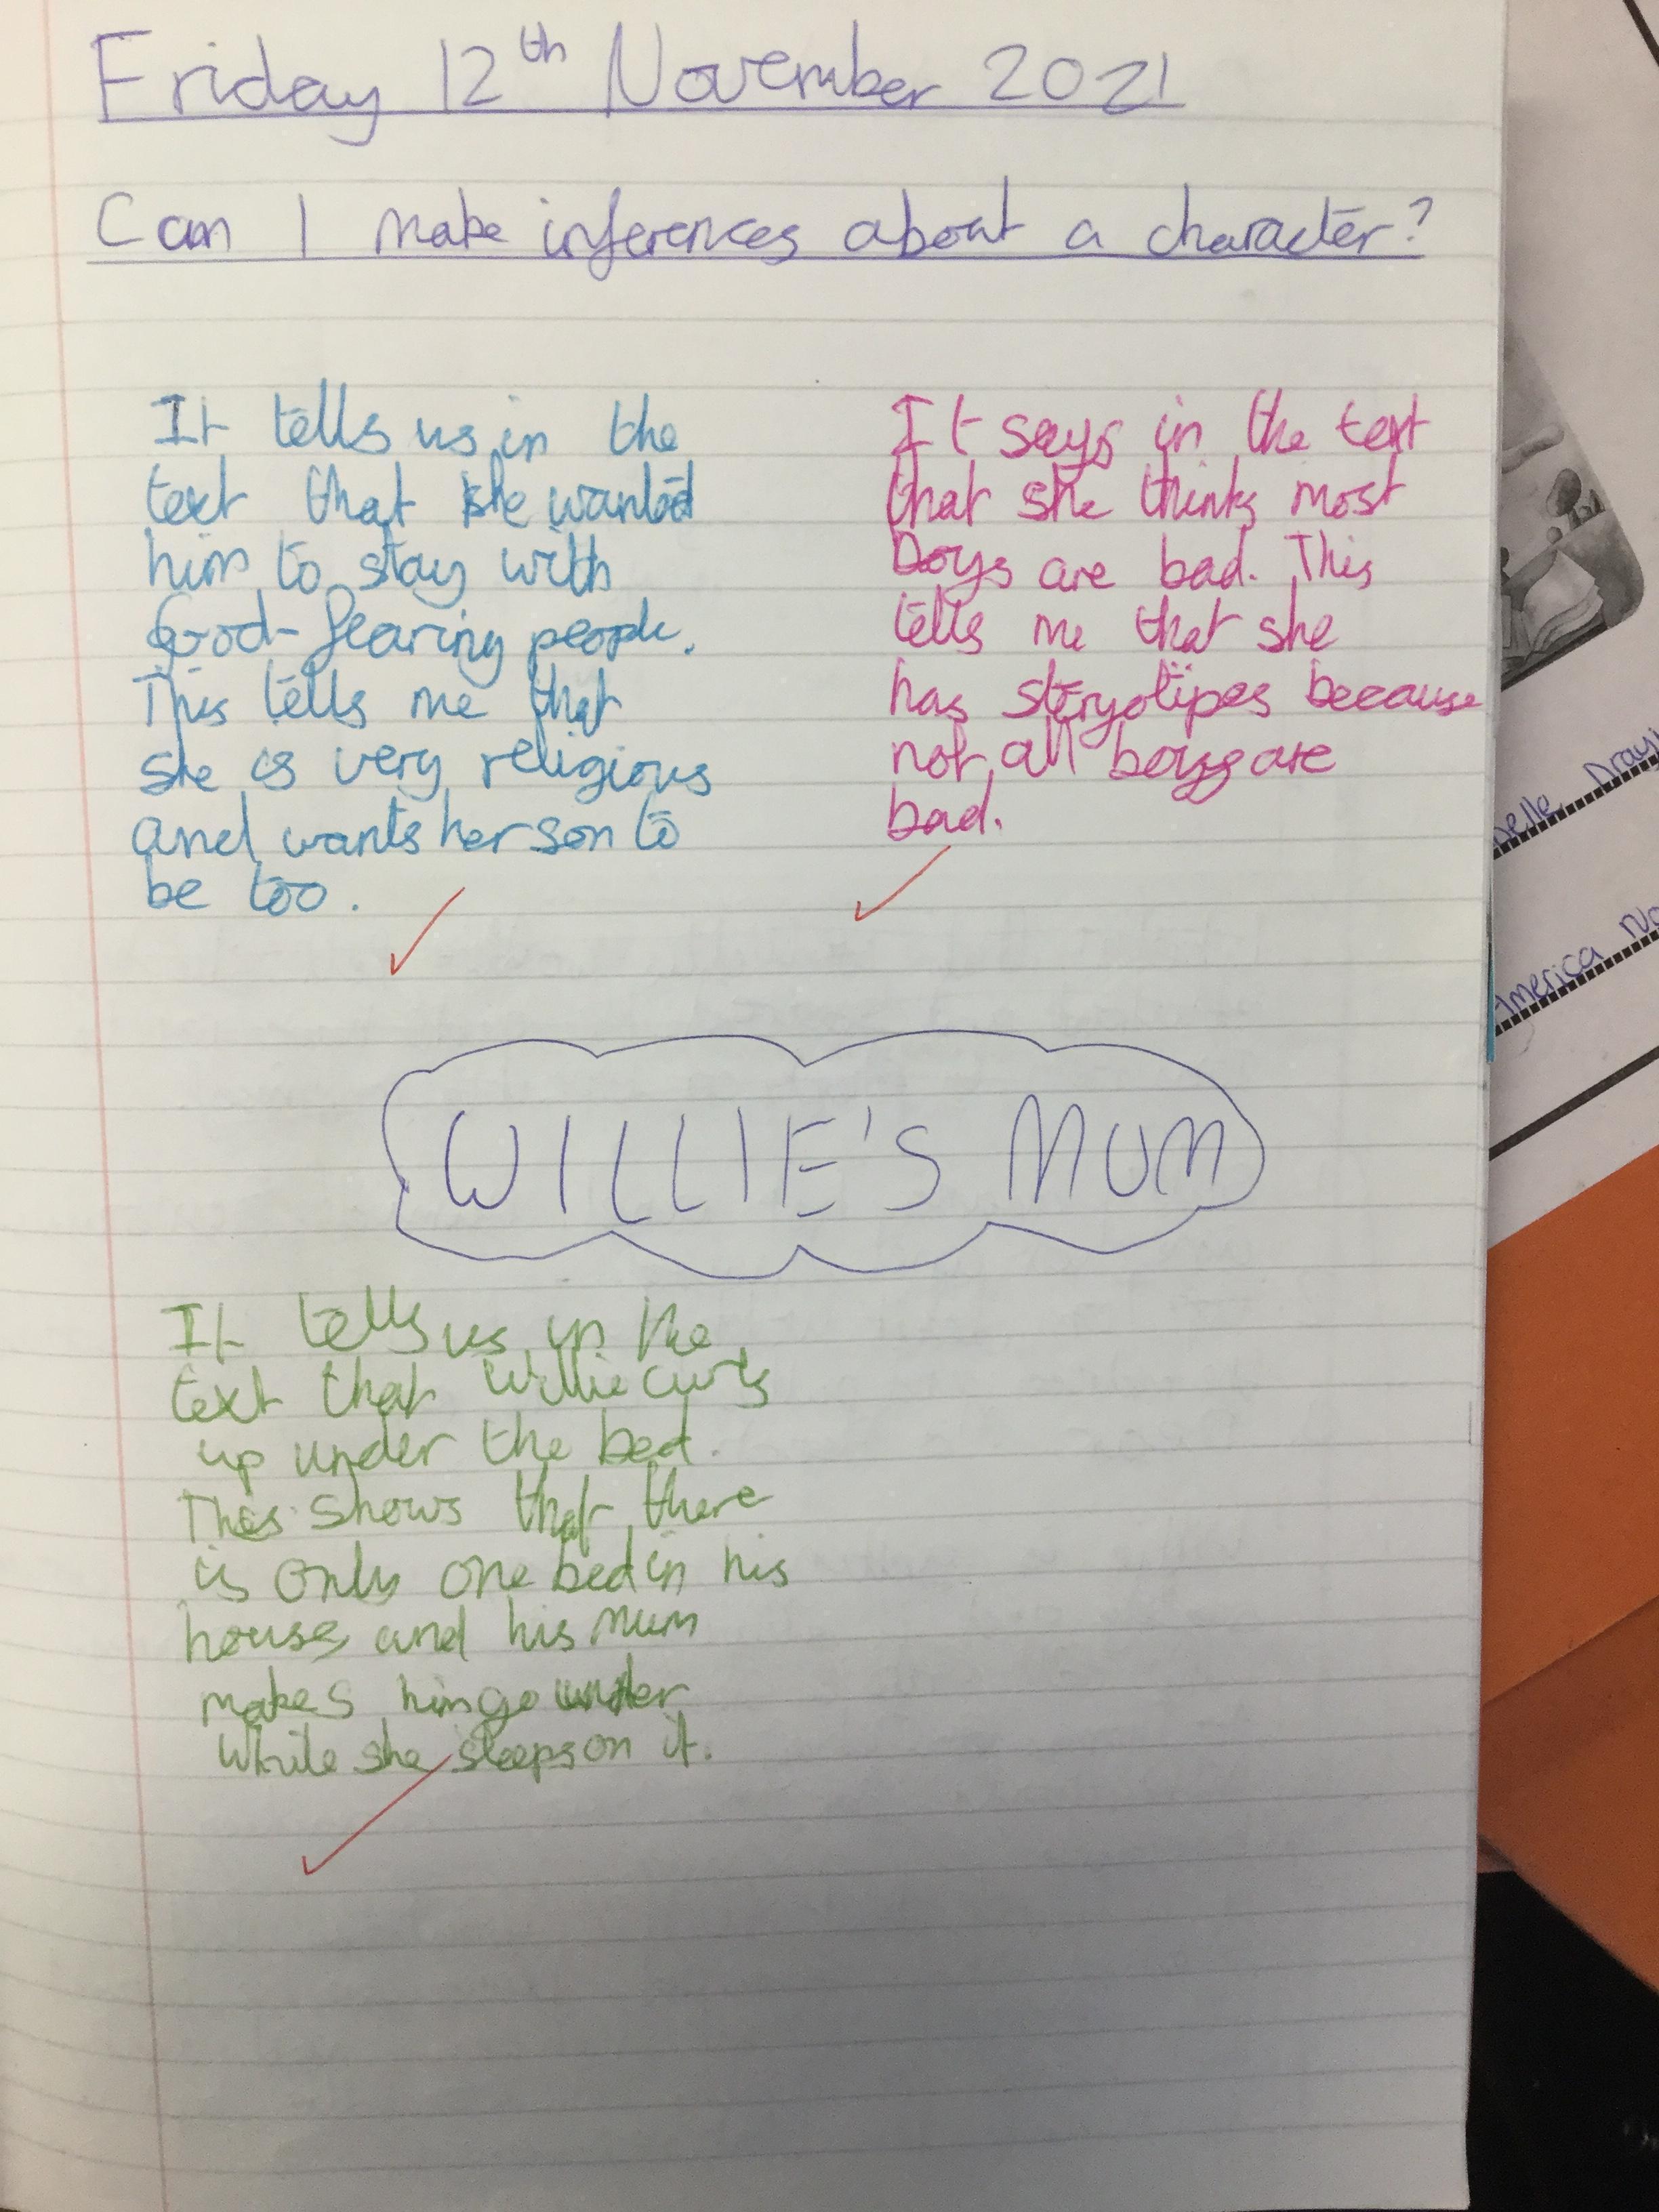 Friday 12th November 2021
Can I make inferences about a character?
It tells us in the
text that she wanted
him to stay with
God-fearing people.
This tells me that
she is very religious
and wants her son to
be too.
It says in the text
that she thinks most
boys are bad. This
tells me that she
has steryotipes because
not all boys are
bad.
WILLIE'S MUM
It tells us in the
text that Willie curls
up under the bed.
This shows that there
is only one bed in his
house and his mum
makes him go under
while she sleeps on it.
America